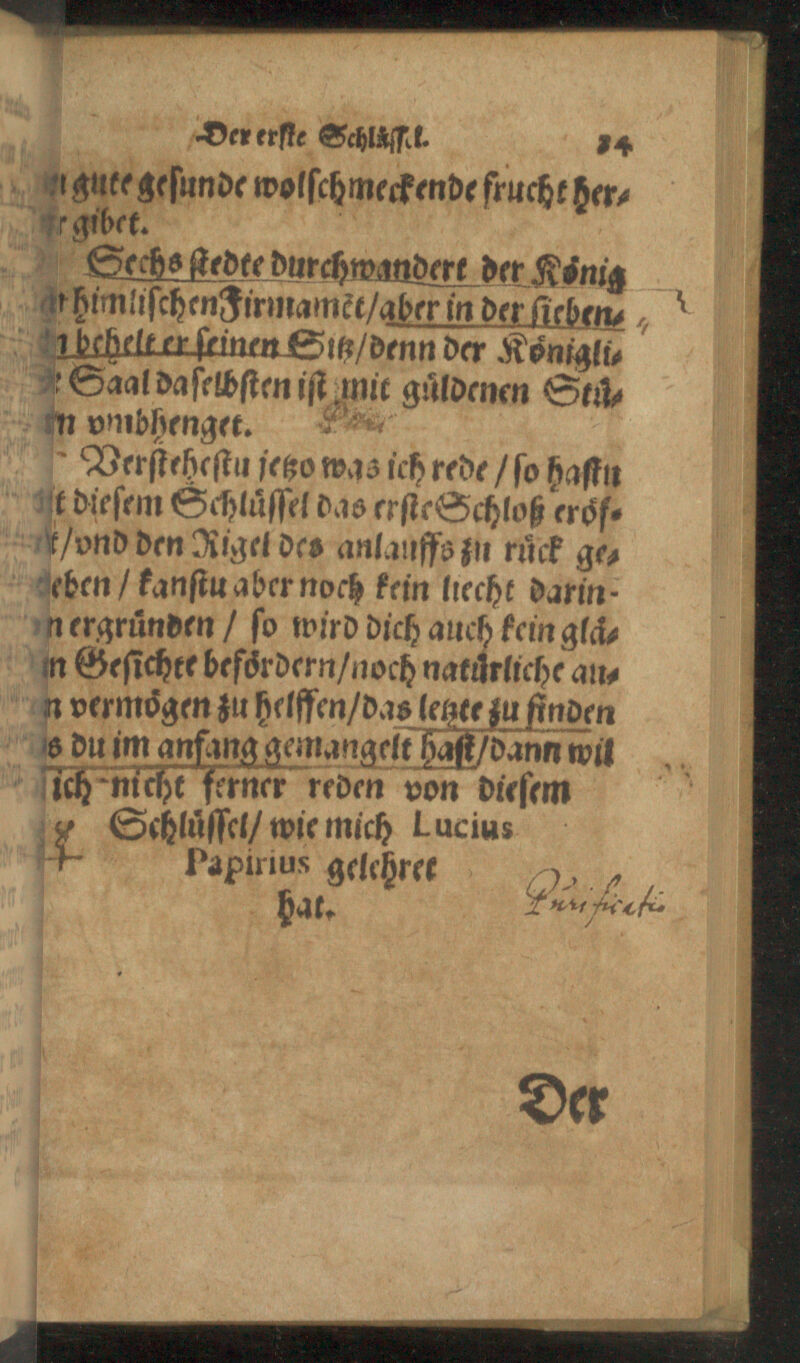 Der erſte Schlüſſel. 24
gute geſunde wolſchmeckende frucht her⸗
gibet.
Sechs ſtedte durchwandert der König
himliſchen Firmamēt/aber in der ſieben⸗
behelt er ſeinen Sitz/denn der Königli⸗
Saal daſelbſten iſt mit güldenen Stü⸗
vmbhenget.
Verſteheſtu jetzo was ich rede / ſo haſtu
dieſem Schlüſſel das erſte Schloß eröf⸗
/vnd den Rigel des anlauffs zu rück ge⸗
ben / kanſtu aber noch kein liecht darin-
ergründen / ſo wird dich auch kein glä⸗
Geſichte befördern/noch natürliche au⸗
vermögen zu helffen/das letzte zu finden
du im anfang gemangelt haſt/dann wil
ich nicht ferner reden von dieſem
Schlüſſel/ wie mich Lucius
Papirius gelehret
hat.
Purificatio
Der